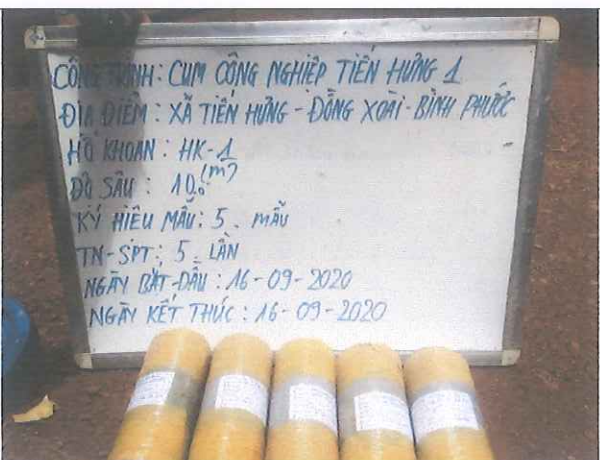 CÔNG TRÌNH: CỤM CÔNG NGHIỆP TIẾN HƯNG 1
ĐỊA ĐIỂM: XÃ TIẾN HƯNG - ĐỒNG XOÀI - BÌNH PHƯỚC
HỐ KHOAN: HK-1
ĐỘ SÂU: 10.0 (m)
KÝ HIỆU MẪU: 5 MẪU
TN-SPT: 5 LẦN
NGÀY BẮT ĐẦU: 16-09-2020
NGÀY KẾT THÚC: 16-09-2020